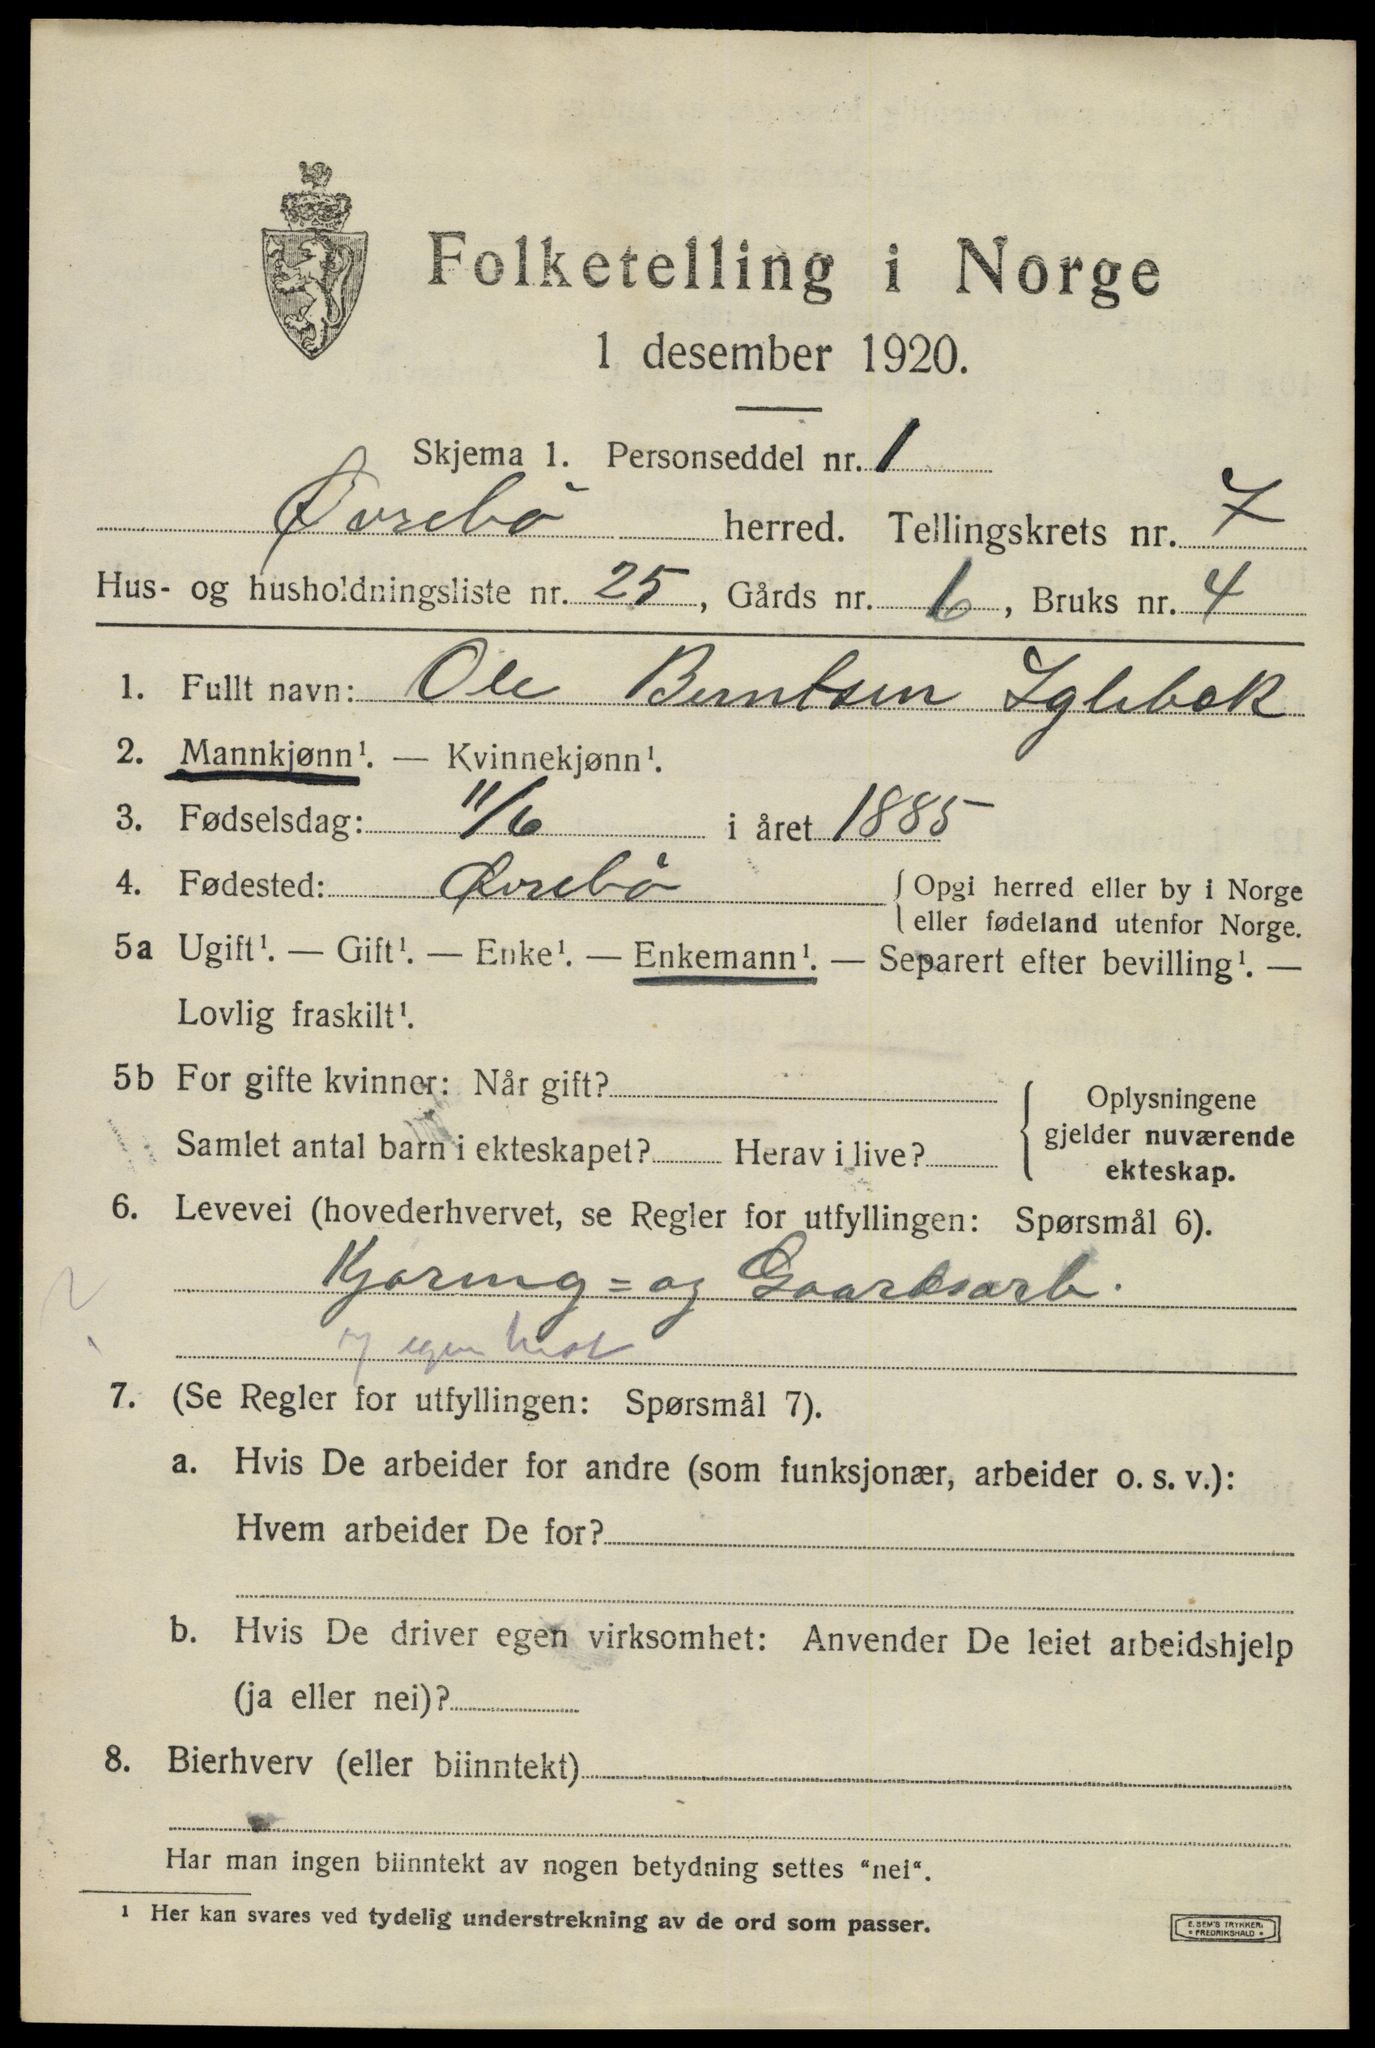 Folketelling i Norge
1 desember 1920.
Skjema 1. Personseddel nr. 1
Øvrebö herred. Tellingskrets nr. 7
Hus- og husholdningsliste nr. 25, Gårds nr. 6, Bruks nr. 4
1. Fullt navn: Ole Berntsen Iglebæk
2. Mannkjønn¹. — Kvinnekjønn¹.
3. Fødselsdag: 11/6 i året 1885
4. Fødested: Øvrebö { Opgi herred eller by i Norge
eller fødeland utenfor Norge.
5a Ugift¹. — Gift¹. — Enke¹. — Enkemann¹. — Separert efter bevilling¹. —
Lovlig fraskilt¹.
5b For gifte kvinner: Når gift?
Samlet antal barn i ekteskapet? Herav i live?
Oplysningene
gjelder nuværende
ekteskap.
6. Levevei (hovederhvervet, se Regler for utfyllingen: Spørsmål 6).
Kjøring = og Gaardsarb.
egen hest
7. (Se Regler for utfyllingen: Spørsmål 7).
a. Hvis De arbeider for andre (som funksjonær, arbeider o. s. v.):
Hvem arbeider De for?
b. Hvis De driver egen virksomhet: Anvender De leiet arbeidshjelp
(ja eller nei)?
8. Bierhverv (eller biinntekt)
Har man ingen biinntekt av nogen betydning settes "nei".
1 Her kan svares ved tydelig understrekning av de ord som passer.
E. SEM'S TRYKKERI
* FREDRIKSHALD *